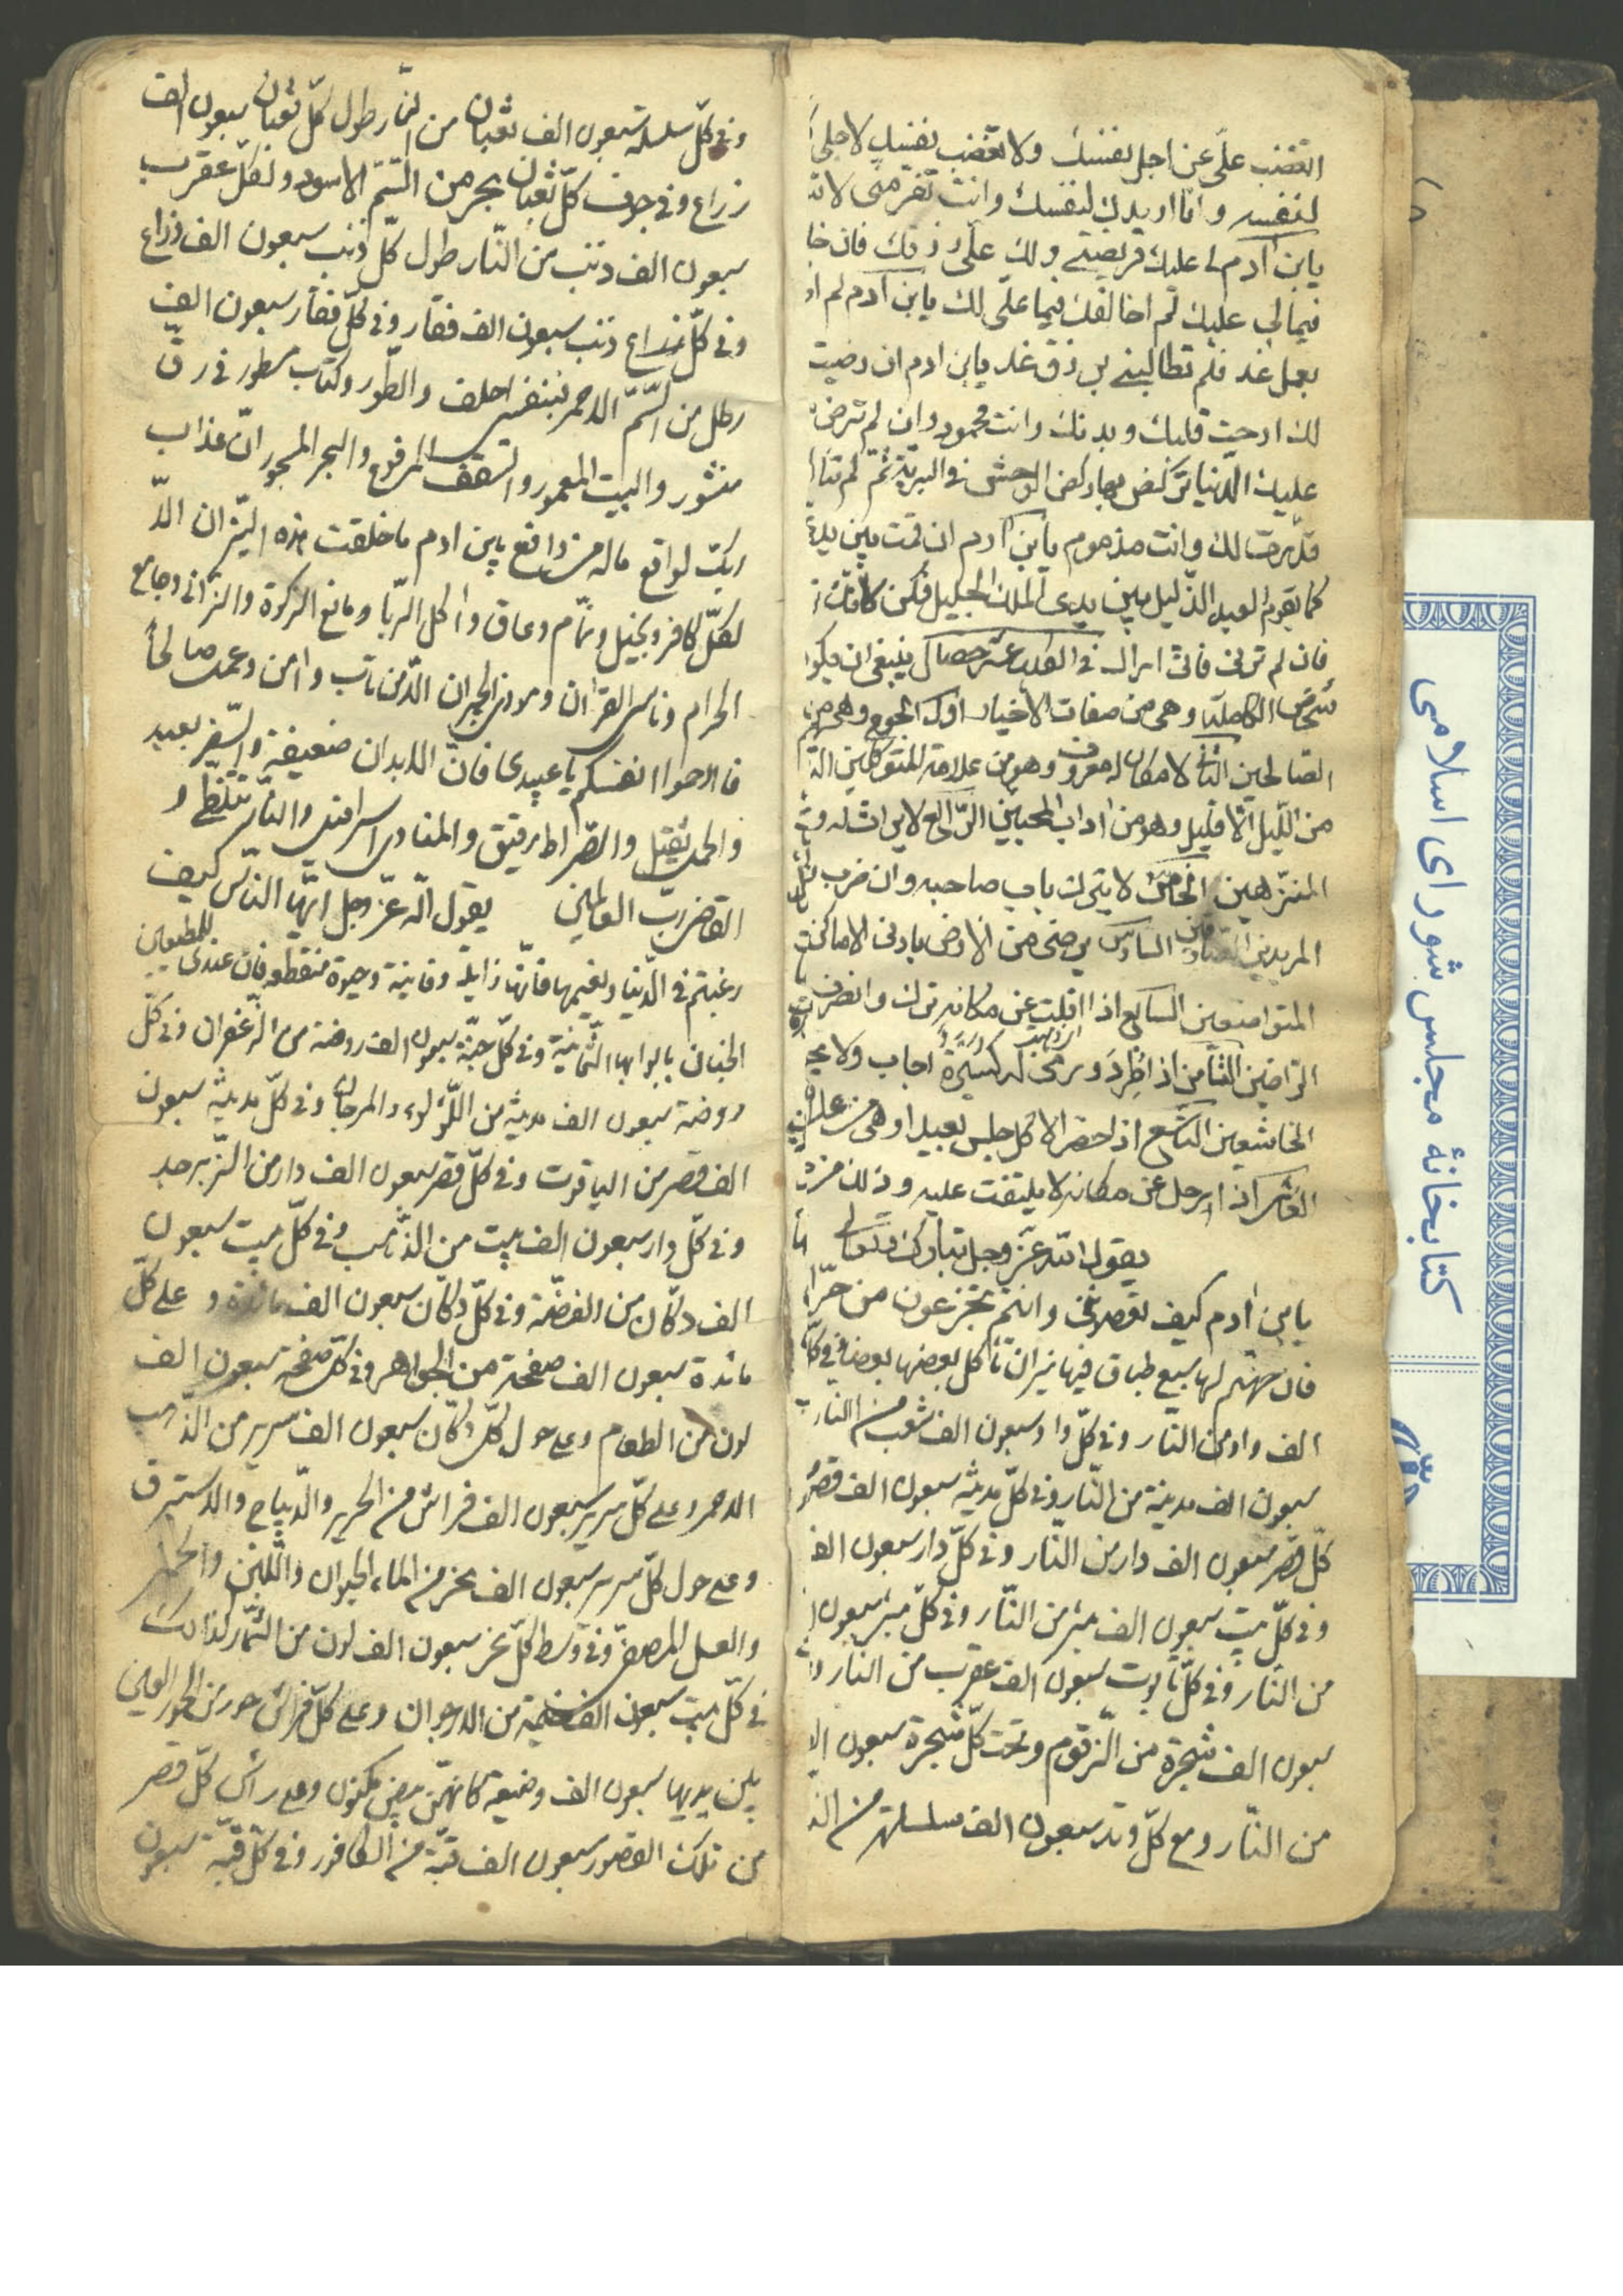 تغضب علىّ عن اجل نفسك ولا تغضب نفسك لاجلى
لنفسه وانّا اريدك لنفسك وانت تفرّ منى
يابن آدم لى عليك فريضتى ولك علىّ رزقك فان خا
فيمالى عليك لم اخالفك فيما علّى لك يابن آدم لم
بعمل غد فلم تطالبنى برزق غد يابن ادم ان رضيت
لك ارحت قلبك وبدنك وانت محمود وان لم ترض
عليك الدنيا تركض بها ركض الوحش فى البرية ثمّ لم تنا
قدّرت لك وانت مذموم يابن آدم ان قمت بين يدى
كما يقوم العبد الذليل بين يدى الملك الجليل فكن كانّك
فان لم ترنى فانى اراك فى الكلب عشر خصال ينبغى ان يكون
الكاملة وهى من صفات الاخيار اولّ الجوع وهى من
الصالحين الثانى لا مكان له معروف وهو من علامة المتوكلين
من الليل الّا قليل وهو من اداب المحبين الرّابع لا ميراث له
المتزهّدين الخامس لا يترك باب صاحبه وان ضرب
المريدين السادس يرضى من الارض بادنى الاماكن
المتواضعين السابع اذا غلب عن مكانه ترك وانصرف
الراضين الثامن اذا طرد ورمى له كسيرة اجاب ولا
الخاشعين التاسع اذا حضر الاكل جلس بعيدا وهى من علامة
العاشر اذا رحل عن مكانه لا يلتفت عليه وذلك من
يقول الله عزّ وجل تبارك وتعالى
يابن آدم كيف تعصونى وانتم تجزعون من حرّ
فان جهنّم لها سبع طباق فيها نيران تأكل بعضها بعضا وفى كلّ
الف واد من النّار وفى كلّ واد سبعون الف شعب من النار
سبعون الف مدينة من النّار وفى كلّ مدينة سبعون الف قصر
كلّ قصر سبعون الف دار من النّار وفى كلّ دار سبعون الف
وفى كلّ بيت سبعون الف بئر من النّار وفى كلّ بئر سبعون
من النّار وفى كلّ تابوت سبعون الف عقرب من النّار
سبعون الف شجرة من الزقّوم وتحت كلّ شجرة سبعون
من النّار ومع كلّ وتد سبعون الف سلسلة من
وفى كلّ سلسلة سبعون الف ثعبان من النّار طول كلّ ثعبان سبعون الف
زراع وفى جوف كلّ ثعبان بحر من السّم الاسود ولكلّ عقرب
سبعون الف ذنب من النّار طول كلّ ذنب سبعون الف ذراع
وفى كلّ زراع ذنب سبعون الف فقار وفى كلّ فقار سبعون الف
رطل من السّمّ الاحمر فبنفسى احلف والطّور وكتاب مسطور فى رقّ
منشور والبيت المعمور والسّقف المرفوع والبحر المسجور انّ عذاب
ربّك لواقع ماله من دافع يابن ادم ما خلقت هذه النيران الّا
لكلّ كافر وبخيل ونمّام وعاق واكل الربّا ومانع الزكوة والزّانى وجامع
الحرام وناسى القران وموذى الجيران الّا من تاب وامن وعمل صالحاً
فارحموا انفسكم يا عبيدى فانّ الابدان ضعيفة والسّفر بعيد
والحمل ثقيل والصّراط رقيق والمنادى اسرافيل والنّار تتلظّى و
القاضى ربّ العالمين يقول الله عزّ وجل ايّها النّاس كيف
رغبتم فى الدّنيا ونعيمها فانّها زايلة وفانية وحيوة منقطعه فانّ عندى للمطيعين
الجنان بابوابها الثّمانية وفى كلّ جنّة سبعون الف روضة من الزّعفران وفى كلّ
روضة سبعون الف مدينة من اللّؤلؤ والمرجان وفى كلّ مدينة سبعون
الف قصر من الياقوت وفى كلّ قصر سبعون الف دار من الزّبرجد
وفى كلّ دار سبعون الف بيت من الذّهب وفى كلّ بيت سبعون
الف دكّان من الفضّة وفى كلّ دكّان سبعون الف مائدة وعلى كلّ
مائدة سبعون الف صفحة من الجواهر وفى كلّ صفحة سبعون الف
لون من الطعام وعلى حول كلّ دكّان سبعون الف سرير من الذّهب
الاحمر وعلى كلّ سرير سبعون الف فراش من الحرير والدّيباج والاستبرق
وعلى حول كلّ سرير سبعون الف نهر من الماء الحيوان واللّبن والخمر
والعسل المصفّى وفى وسط كلّ نهر سبعون الف لون من الثّمار كذالك
فى كلّ بيت سبعون الف خيمة من الارجوان وعلى كلّ فراش حور من الحور العين
بين يديها سبعون الف وضيعة كانهنّ بيض مكنون وعلى راس كلّ قصر
من تلك القصور سبعون الف قبّة من الكافور وفى كلّ قبّة سبعون
كتابخانهٔ مجلس شورای اسلامی